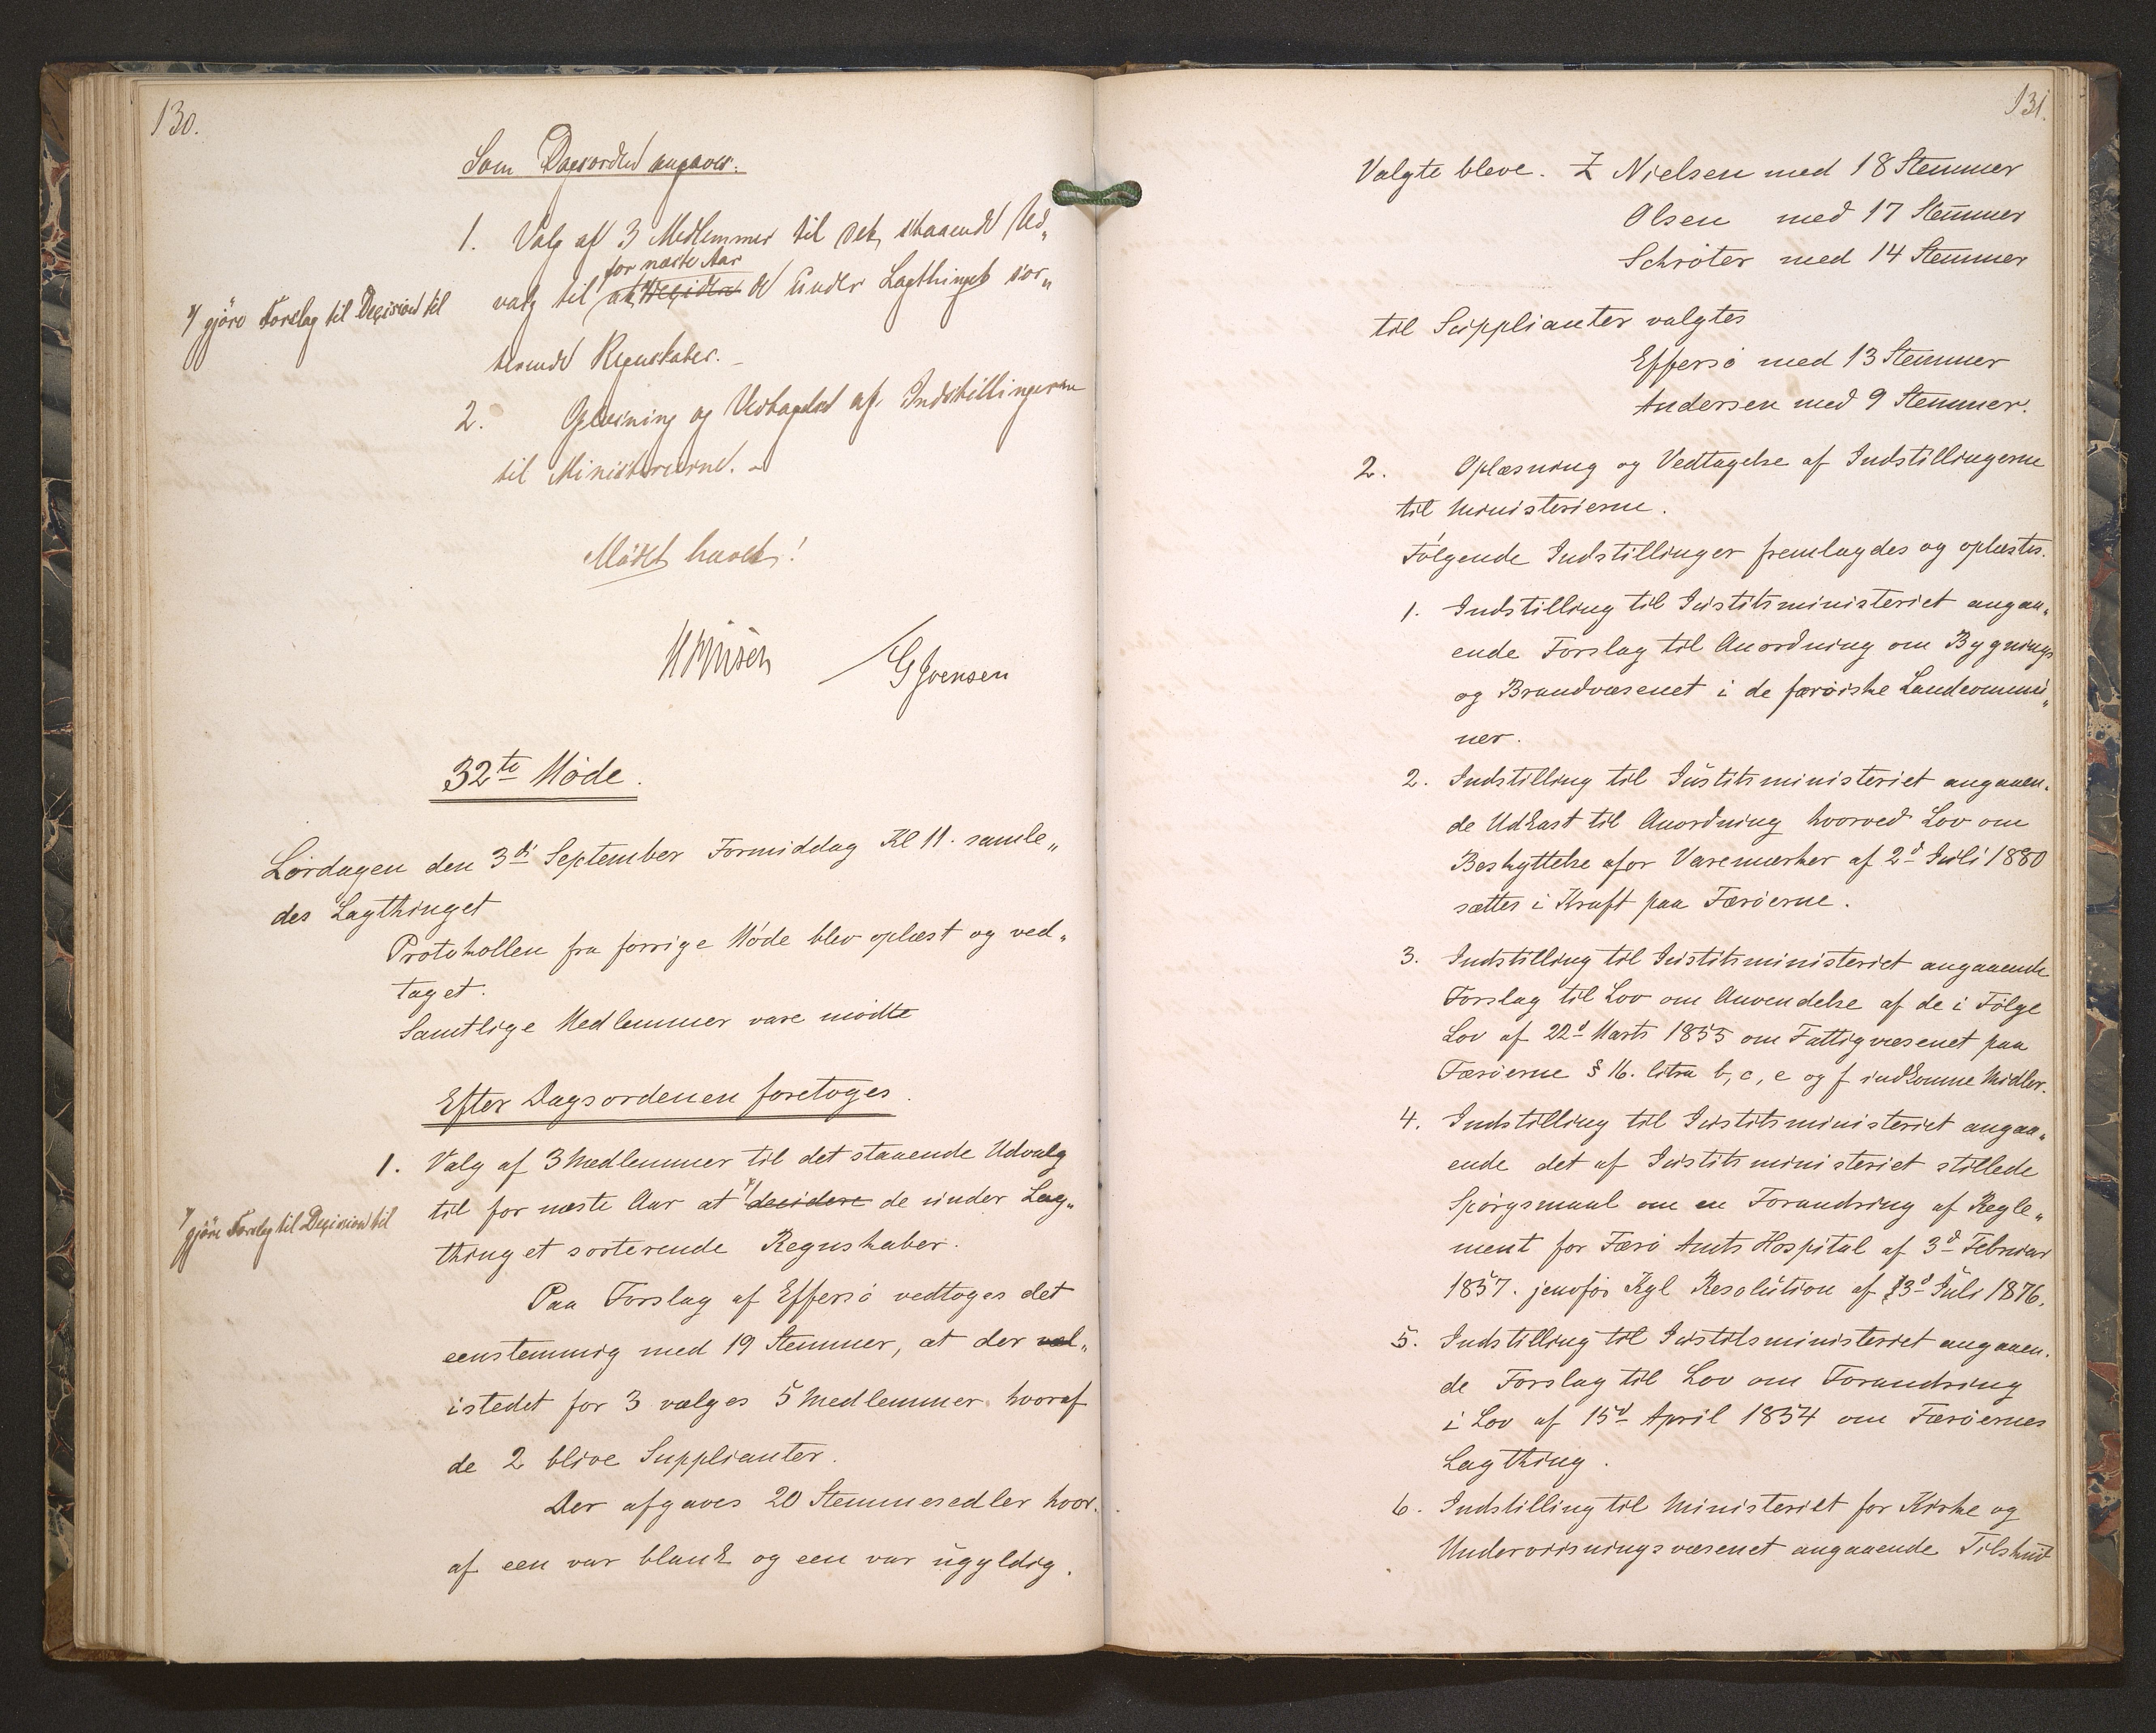 130.
Som Dagsorden angaves:
1. Valg af 3 Medlemmer til det staaende Ud„
for næste Aar
valg til at decidere de under Lagthinget sor„
¹/ gjöre Forslag til Decision til
terende Regnskaber. –
2. Oplæsning og Vedtagelse af Indstillingerne
til Ministerierne. –
Mödet hævet!
G Joensen
32te Möde.
Lördagen den 3di September Formiddag Kl 11. samle„
des Lagthinget
Protokollen fra forrige Möde blev oplæst og ved„
taget.
Samtlige Medlemmer vare mödte
Efter Dagsordenen foretoges.
1. Valg af 3 Medlemmer til det staaende Udvalg
til for næste Aar at ¹/ decidere de under Lag„
¹/ gjöre Forslag til Decision til
thinget sorterende Regnskaber.
Paa Forslag af Effersö vedtoges det
eenstemmig med 19 Stemmer, at der væl„
istedet for 3 vælges 5 Medlemmer hvoraf
de 2 blive Supplianter.
Der afgaves 20 Stemmesedler hvor„
af een var blank og een var ugyldig.
131.
Valgte bleve. Z Nielsen med 18 Stemmer
Olsen med 17 Stemmer
Schröter med 14 Stemmer
til Supplianter valgtes
Effersö med 13 Stemmer
Andersen med 9 Stemmer.
2. Oplæsning og Vedtagelse af Indstillingerne
til Ministerierne.
Fölgende Indstillinger fremlagdes og oplæstes.
1. Indstilling til Justitsministeriet angaa„
ende Forslag til Anordning om Bygnings
og Brandvæsenet i de færöiske Landcommu„
ner.
2. Indstilling til Justitsministeriet angaaen„
de Udkast til Anordning hvorved Lov om
Beskyttelse afor Varemærker af 2d Juli 1880
sættes i Kraft paa Færöerne.
3. Indstilling til Justitsministeriet angaaende
Forslag til Lov om Anvendelse af de i Fölge
Lov af 22d Marts 1855 om Fattigvæsenet paa
Færöerne § 16. litra b, c, e og f indkomne Midler.
4. Indstilling til Justitsministeriet angaa„
ende det af Justitsministeriet stillede
Spörgsmaal om en Forandring af Regle„
ment for Færö Amts Hospital af 3d Februar
1857. jevnför Kgl Resolution af 13d Juli 1876.
5. Indstilling til Justitsministeriet angaaen„
de Forslag til Lov om Forandring
i Lov af 15d April 1854 om Færöernes
Lagthing.
6. Indstilling til Ministeriet for Kirke og
Underviisningsvæsenet angaaende Tilskud